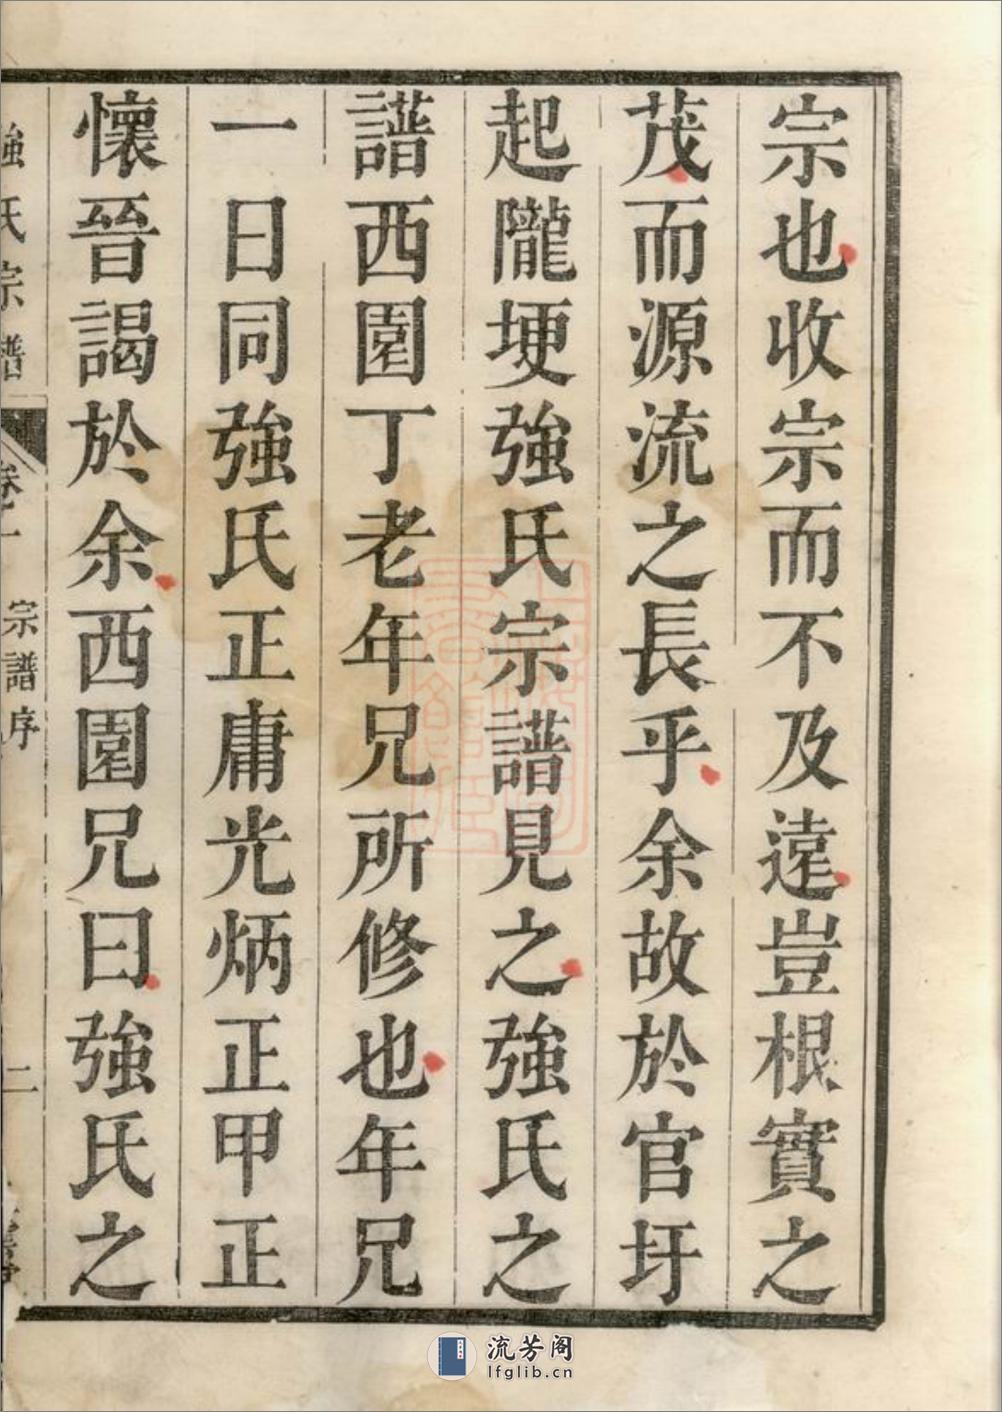 宗也收宗而不及遠豈根實之
茂而源流之長乎余故於官圩
起隴埂強氏宗譜見之強氏之
譜西園丁老年兄所修也年兄
一日同強氏正庸光炳正甲正
懷晉謁於余西園兄曰強氏之
強氏宗譜
卷一
宗譜序
二
流芳阁
lfglib.cn